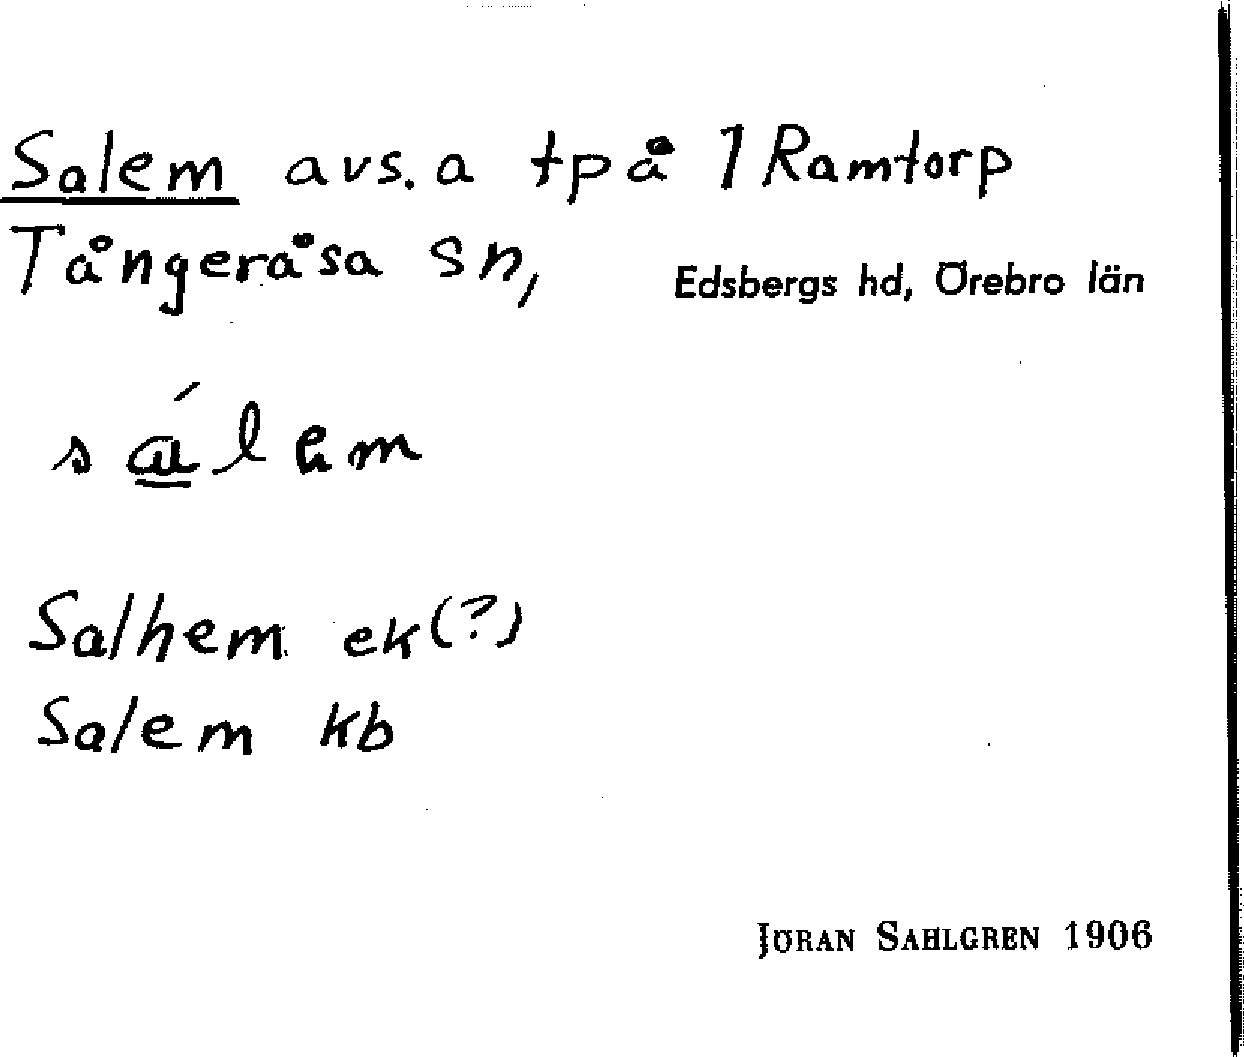 Salem avs. a tpå 1 Ramtorp
Tångeråsa sn,
Edsbergs hd, Örebro län
sálem
Salhem ek(?)
Salem kb
JÖRAN SAHLGREN 1906